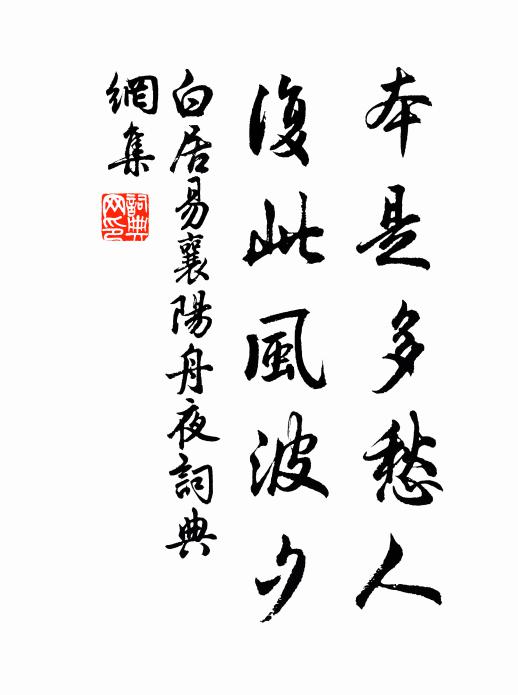 本是多愁人
復此風波夕
白居易襄陽舟夜詞典
網集
詞典網印